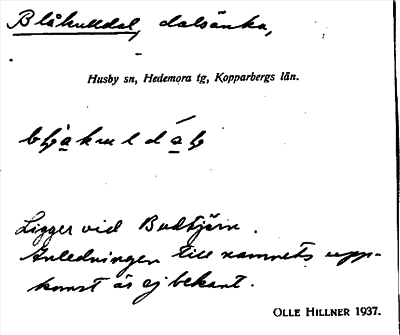 Blåkulldal, dalsänka,
Husby sn, Hedemora tg, Kopparbergs län.
Ligger vid Budtjärn.
Anledningen till namnets upp-
komst är ej bekant.
OLLE HILLNER 1937.